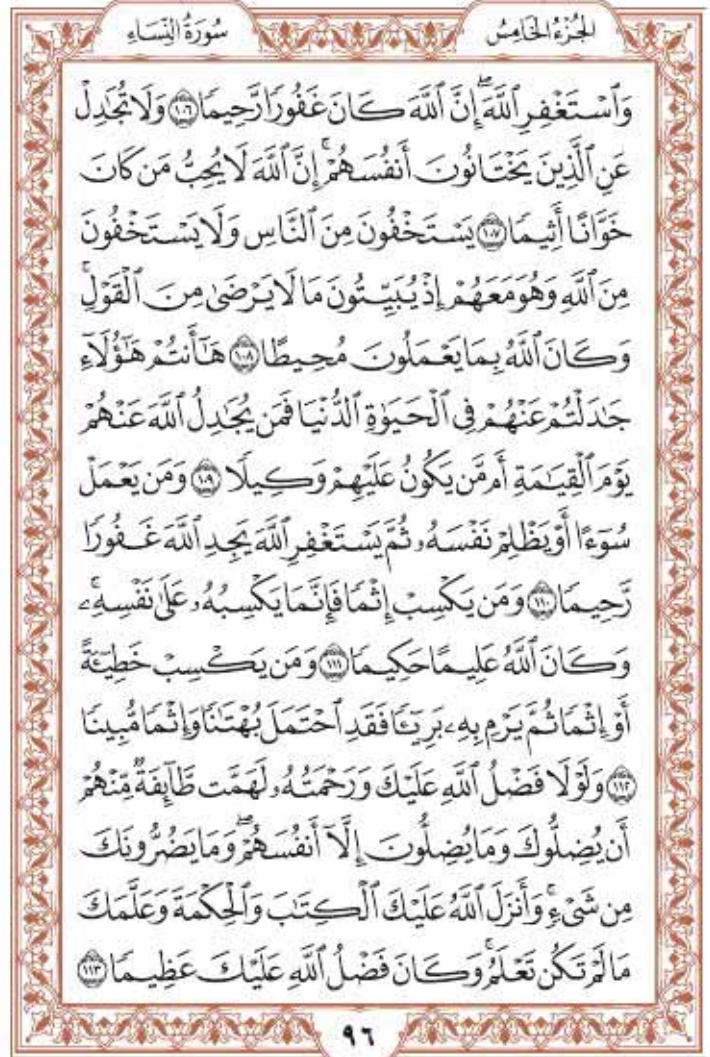 الجُزْءُ الخَامِسُ
سُورَةُ النِّسَاءِ
وَٱسْتَغْفِرِ ٱللَّهَۖ إِنَّ ٱللَّهَ كَانَ غَفُورًا رَّحِيمًا ١٠٦ وَلَا تُجَٰدِلْ
عَنِ ٱلَّذِينَ يَخْتَانُونَ أَنفُسَهُمْۚ إِنَّ ٱللَّهَ لَا يُحِبُّ مَن كَانَ
خَوَّانًا أَثِيمًا ١٠٧ يَسْتَخْفُونَ مِنَ ٱلنَّاسِ وَلَا يَسْتَخْفُونَ
مِنَ ٱللَّهِ وَهُوَ مَعَهُمْ إِذْ يُبَيِّتُونَ مَا لَا يَرْضَىٰ مِنَ ٱلْقَوْلِۚ
وَكَانَ ٱللَّهُ بِمَا يَعْمَلُونَ مُحِيطًا ١٠٨ هَٰٓأَنتُمْ هَٰٓؤُلَآءِ
جَٰدَلْتُمْ عَنْهُمْ فِي ٱلْحَيَوٰةِ ٱلدُّنْيَا فَمَن يُجَٰدِلُ ٱللَّهَ عَنْهُمْ
يَوْمَ ٱلْقِيَٰمَةِ أَم مَّن يَكُونُ عَلَيْهِمْ وَكِيلًا ١٠٩ وَمَن يَعْمَلْ
سُوٓءًا أَوْ يَظْلِمْ نَفْسَهُۥ ثُمَّ يَسْتَغْفِرِ ٱللَّهَ يَجِدِ ٱللَّهَ غَفُورًا
رَّحِيمًا ١١٠ وَمَن يَكْسِبْ إِثْمًا فَإِنَّمَا يَكْسِبُهُۥ عَلَىٰ نَفْسِهِۦۚ
وَكَانَ ٱللَّهُ عَلِيمًا حَكِيمًا ١١١ وَمَن يَكْسِبْ خَطِيٓـَٔةً
أَوْ إِثْمًا ثُمَّ يَرْمِ بِهِۦ بَرِيٓـًٔا فَقَدِ ٱحْتَمَلَ بُهْتَٰنًا وَإِثْمًا مُّبِينًا
١١٢ وَلَوْلَا فَضْلُ ٱللَّهِ عَلَيْكَ وَرَحْمَتُهُۥ لَهَمَّت طَّآئِفَةٌ مِّنْهُمْ
أَن يُضِلُّوكَ وَمَا يُضِلُّونَ إِلَّآ أَنفُسَهُمْۖ وَمَا يَضُرُّونَكَ
مِن شَيْءٍۚ وَأَنزَلَ ٱللَّهُ عَلَيْكَ ٱلْكِتَٰبَ وَٱلْحِكْمَةَ وَعَلَّمَكَ
مَا لَمْ تَكُن تَعْلَمُۚ وَكَانَ فَضْلُ ٱللَّهِ عَلَيْكَ عَظِيمًا ١١٣
٩٦